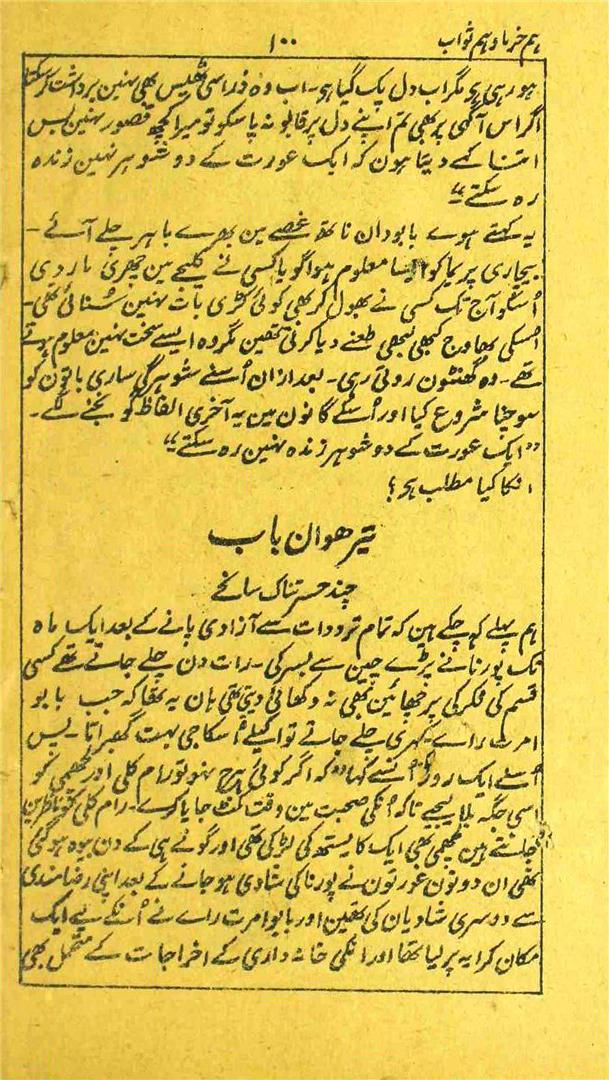 ہم خرما و ہم ثواب
۱۰۰
ہو رہی ہی مگر اب دل پک گیا ہو۔ اب وہ ذرا سی ٹھیس بھی نہین برداشت کر سکتا
اگر اس آگہی پر بھی تم اپنے دل پر قابو نہ پا سکو تو میرا کچھ قصور نہین بس
اتنا کہے دیتا ہون کہ ایک عورت کے دو شوہر نہین زندہ
رہ سکتے"
یہ کہتے ہوے بابو دان ناتھ غصے مین بھرے باہر چلے آئے۔
بیچاری پریما کو ایسا معلوم ہوا گویا کسی نے کلیجے مین چھری مار دی
اُسکو آج تک کسی نے بھول کر بھی کوئی کڑی بات نہین سُنائی تھی۔
اُسکی بھاوج کبھی کبھی طعنے دیا کرتی تھین مگر وہ ایسے سخت نہین معلوم ہوتے
تھے۔ وہ گھنٹون روتی رہی۔ بعد ازان اُسنے شوہر کی ساری باتون کو
سوچنا شروع کیا اور اُسکے کانون مین یہ آخری الفاظ گونجنے لگے۔
"ایک عورت کے دو شوہر زندہ نہین رہ سکتے"
انکا کیا مطلب ہی؟
تیرھوان باب
چند حسرتناک سانحے
ہم پہلے کہ چکے ہین کہ تمام ترددات سے آزادی پانے کے بعد ایک ماہ
تک پورنا نے بڑے چین سے بسر کی۔ رات دن چلے جاتے تھے کسی
قسم کی فکر کی پرچھائین بھی نہ دکھائی دیتی تھی ہان یہ تھا کہ جب بابو
امرت راے کچہری چلے جاتے تو اکیلے اُسکا جی بہت گھبراتا۔ پس
اُسنے ایک روز اُنسے کہا کہ اگر کوئی ہرج نہو تو رام کلی اور لچھمی کو
اسی جگہ بلا لیجیے تاکہ اُنکی صحبت مین وقت کٹ جایا کرے۔ رام کلی کو ناظرین
جانتے ہین لچھمی بھی ایک کایستھ کی لڑکی تھی اور گونے ہی کے دن بیوہ ہو گئی
تھی ان دونون عورتون نے پورنا کی شادی ہو جانے کے بعد اپنی رضامندی
سے دوسری شادیان کی تھین اور بابو امرت راے نے اُنکے لیے ایک
مکان کرایہ پر لیا تھا اور انکی خانہ داری کے اخراجات کے متحمل بھی